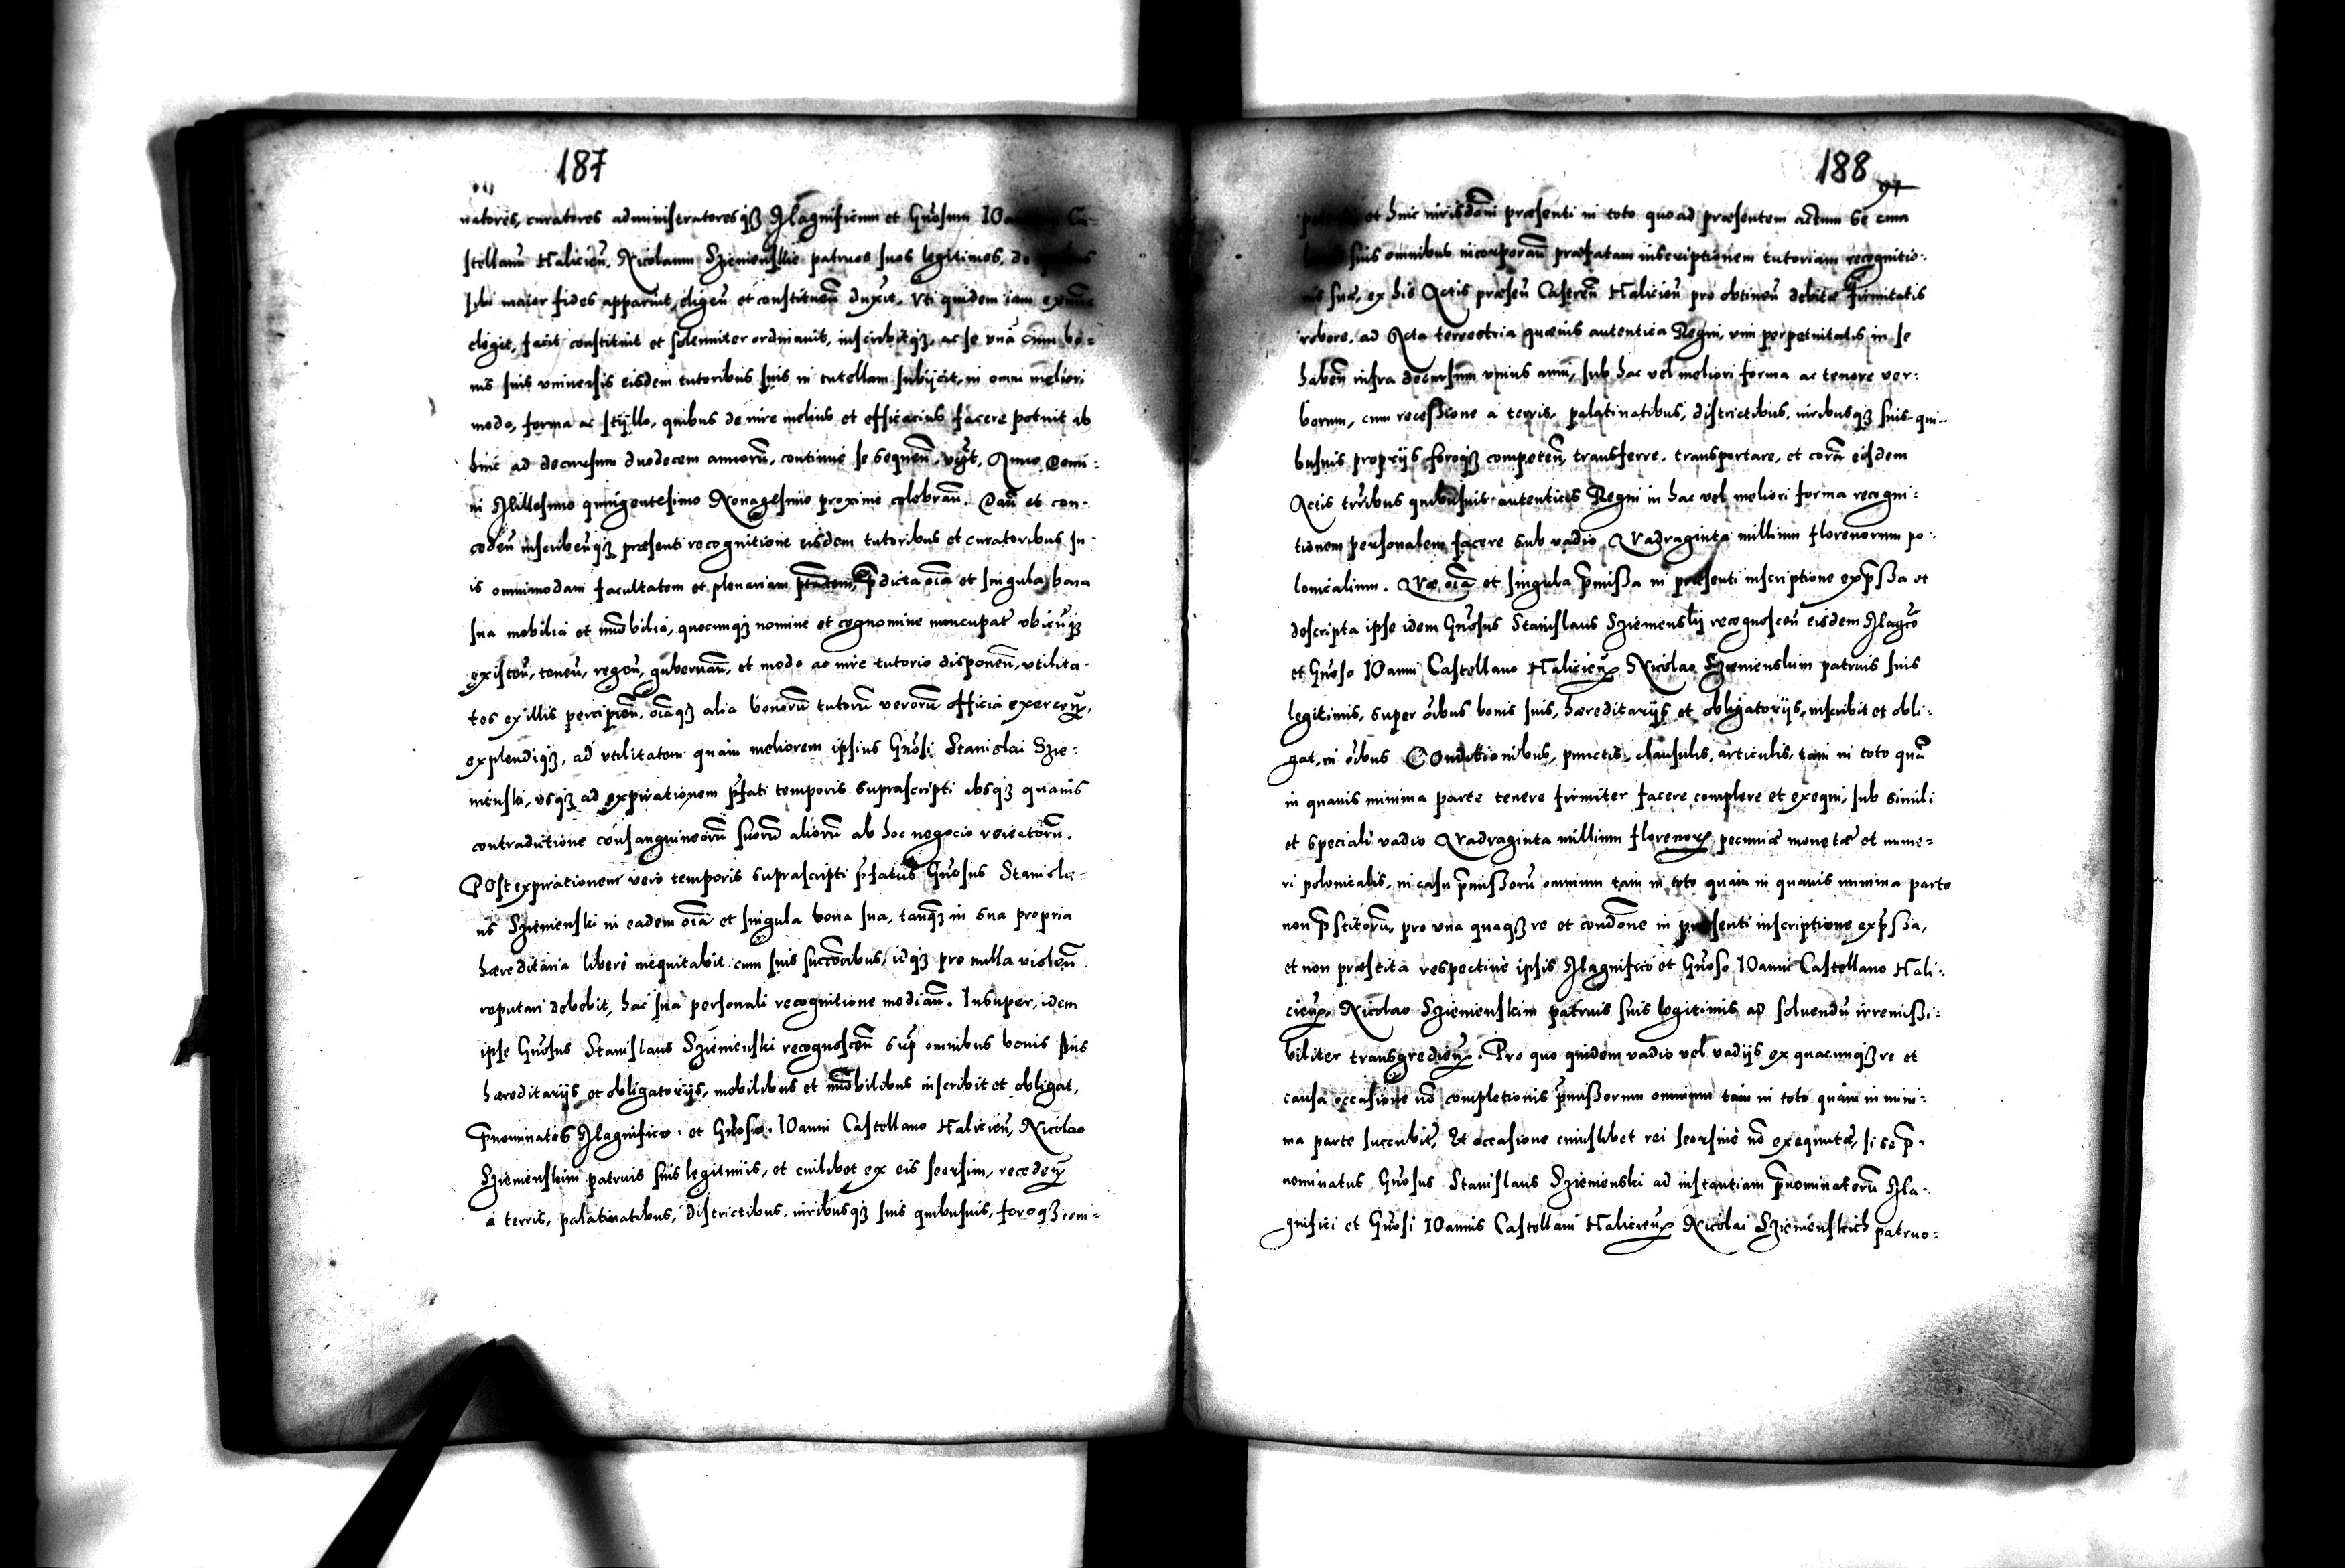 187
natores, curatores administratoresqꝫ Magnificum et Gnosum IOa Ca-
stellanū Halicieñ, Nicolaum Sziemienskie patruos suos legitimos, de
sibi maior fides apparuit, eligeñ et constitueñ duxit. Vti quidem iam
elegit, facit constituit et solenniter ordinauit, inscribitqꝫ, ac se vnā cum bo=
nis suis vniuersis eisdem tutoribus suis in tutellam subijcit, in omni meliori
modo, forma ac styllo, quibus de iure melius et efficacius facere potuit ab
hinc ad decursum duodecem annorū, continue se sequeñ, vꝫt, Anno Domi:
ni Millesimo quingentesimo Nonagesimo proxime celebrañ. Dañ et con-
cedeñ inscribeñqꝫ præsenti recognitione eisdem tutoribus et curatoribus su-
is omnimodam facultatem et plenariam ptātem, p̄dicta oīa et singula bona
sua mobilia et īmobilia, quocunqꝫ nomine et cognomine nuncupat̃ vbicūqꝫ
existeñ, teneñ, regeñ, gubernañ, et modo ac iure tutorio disponeñ, vtilita-
tes ex illis percipieñ, oīaqꝫ alia bonorū tutorū verorū officia exerceñ,
explendiqꝫ, ad vtilitatem quam meliorem ipsius Gnosi Stanislai Szie=
mienski, vsqꝫ ad expirationem p̄fati temporis suprascripti absqꝫ quauis
contradictione consanguineorū suorū aliorū ab hoc negocio reiectorū.
POst expirationem vero temporis suprascripti p̄fatus Gnosus Stanisla=
us Sziemienski in eadem oīa et singula bona sua, tanqꝫ in sua propria
hæreditaria liberè inequitabit cum suis succōribus, idqꝫ pro nulla violeñ
reputari debebit, hac sua personali recognitione mediañ. Insuper, idem
ipse Gnosus Stanislaus Sziemienski recognosceñ sup̄ omnibus bonis suis
hæreditarijs et obligatorijs, mobilibus et īmobilibus inscribit et obligat,
p̄nominatos Magnifico et Gnoso IOanni Castellano Halicieñ, Nicolao
Sziemienskim patruis suis legitimis, et cuilibet ex eis seorsim, recedeñ
à terris, palatinatibus, districtibus, iuribusqꝫ suis quibusuis, foroqꝫ com=
188
91
et huic iurisdōni præsenti in toto quo ad præsentem actum se cum
suis omnibus incorporañ præfatam inscriptionem tutoriam recognitio:
nis suæ, ex his Actis præseñ Castreñ Halicieñ pro obtineñ debitæ firmitatis
robore, ad Acta terrestria quæuis autentica Regni, vim perpetuitatis in se
habeñ infra decursum vnius anni, sub hac vel meliori forma ac tenore ver:
borum, cum recessione à terris, palatinatibus, districtibus, iuribusqꝫ suis qui-
busuis proprijs foroqꝫ competeñ, transferre, transportare, et corā eisdem
Actis tr̃ribus quibusuis autenticis Regni in hac vel meliori forma recogni:
tionem personalem facere sub vadio QVadraginta millium florenorum po:
lonicalium. QVæ oīa et singula p̄missa in præsenti inscriptione exp̄ssa et
descripta ipse idem Gnosus Stanislaus Sziemienskij recognosceñ eisdem Magco
et Gnoso IOanni Castellano Halicieñ, Nicolao Sziemienskim patruis suis
legitimis, super oībus bonis suis, hæreditarijs et obligatorijs, inscribit et obli:
gat, in oībus COnditionibus, punctis, clausulis, articulis, tam in toto quā
in quauis minima parte tenere firmiter facere complere et exequi, sub simili
et speciali vadio QVadraginta millium florenoꝝ pecuniæ monetæ et nume=
ri polonicalis, in casu p̄missorū omnium tam in toto quàm in quauis minima parte
non p̄stitorū, pro vna quaqꝫ re et condōne in præsenti inscriptione exp̄ssa,
et non præstita respectiuè ipsis Magnifico et Gnoso IOanni Castellano Hali:
cieñ, Nicolao Sziemienskim patruis suis legitimis ad soluendū irremissi:
biliter transgredieñ. Pro quo quidem vadio vel vadijs ex quacunqꝫ re et
causa occasione nō completionis p̄missorum omnium tam in toto quàm in mini:
ma parte succubit̃, Et occasione cuiuslibet rei seorsiuè nō exequutæ, si se p̄-
nominatus Gnosus Stanislaus Sziemienski ad instantiam p̄nominatorū Ma-
gnifici et Gnosi IOannis Castellani Halicieñ Nicolai Sziemienskich patruo=